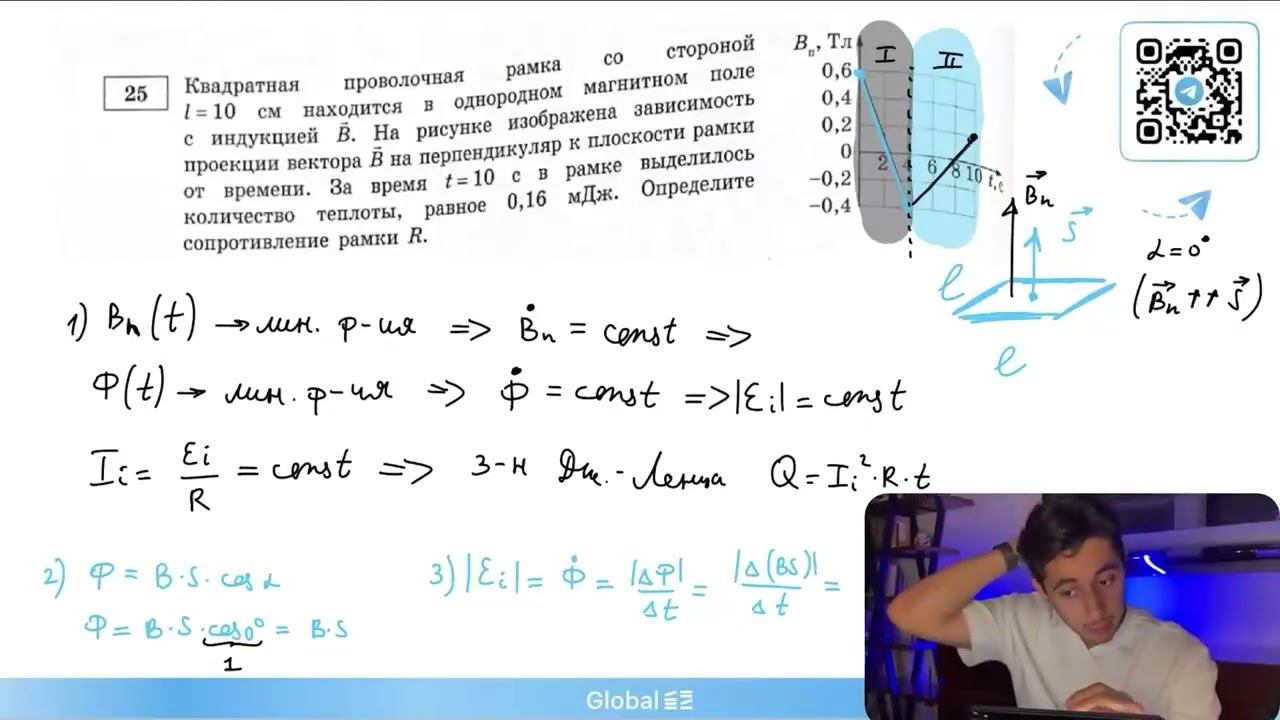 25
Квадратная проволочная рамка со стороной
l = 10 см находится в однородном магнитном поле
с индукцией B⃗. На рисунке изображена зависимость
проекции вектора B⃗ на перпендикуляр к плоскости рамки
от времени. За время t = 10 с в рамке выделилось
количество теплоты, равное 0,16 мДж. Определите
сопротивление рамки R.
Bп, Тл
I II
0,6
0,4
0,2
0
−0,2
−0,4
2 4 6 8 10 t, с
B⃗n
S⃗
l
l
α = 0°
(B⃗n ↑↑ S⃗)
1) Bn(t) → лин. ф-ия => Ḃn = const =>
Φ(t) → лин. ф-ия => Φ̇ = const => |Ɛi| = const
Ii = Ɛi/R = const => З-н Дж.-Ленца Q = Ii²·R·t
2) Φ = B·S·cos α
Φ = B·S·cos0° = B·S
1
3) |Ɛi| = Φ̇ = |ΔΦ|/Δt = |Δ(BS)|/Δt =
Global ΕΓЭ